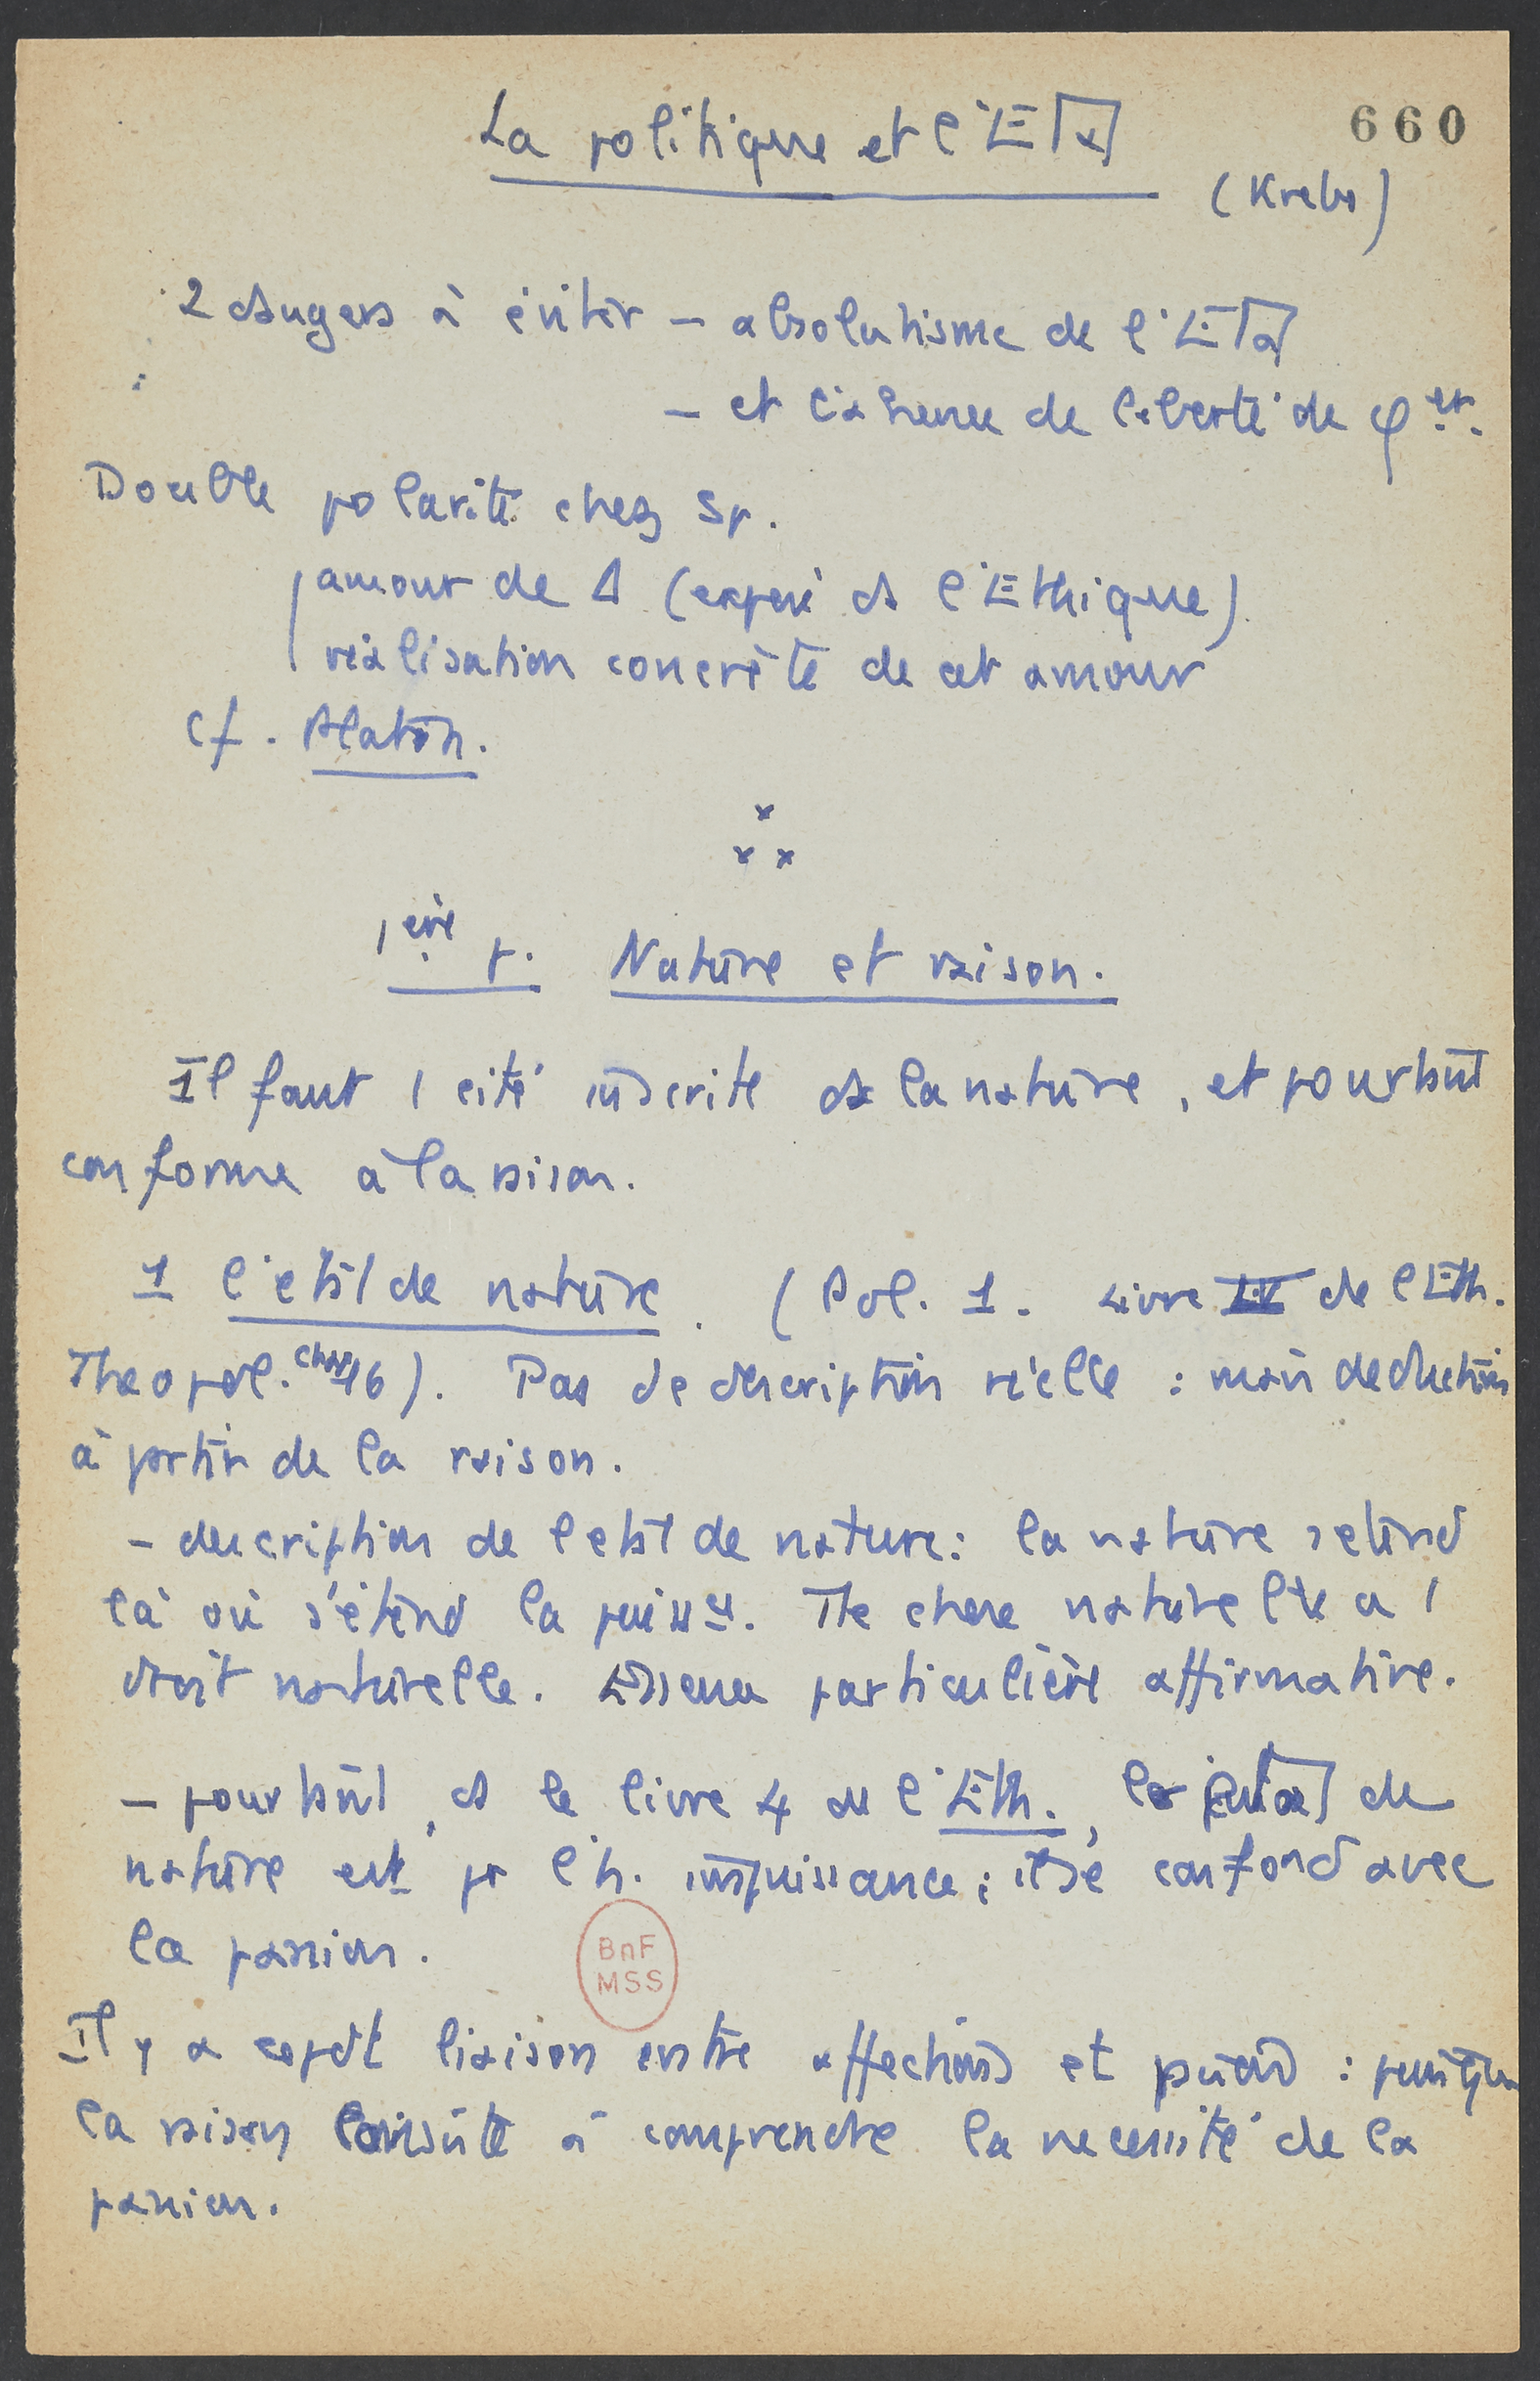 660
La politique et l'Etat
(Krebs)
2 dangers à éviter – absolutisme de l'Etat
– et l'absence de liberté de φer.
Double polarité chez Sp.
amour de Δ (exposé ds l'Ethique).
réalisation concrète de cet amour
Cf. Platon.
x
x x
1ère p. Nature et raison.
Il faut 1 cité inscrite ds la nature, et pourtant
conforme à la raison.
1 l'etat de nature. (Pol. 1. Livre IV de l Eth.
Theopol. chap 16). Pas de description réelle : mais deduction
à partir de la raison.
– description de l etat de nature: la nature s etend
là où s'étend la puissce. Tte chose naturelle a 1
droit naturelle. Essence particulière affirmative.
– pourtant, ds le livre 4 de l'Eth., l'etat de
nature est pr l'h. impuissance; il se confond avec
la passion.
BnF
MSS
Il y a liaison entre affections et : puisque
la raison consiste à comprendre la necessité de la
passion.